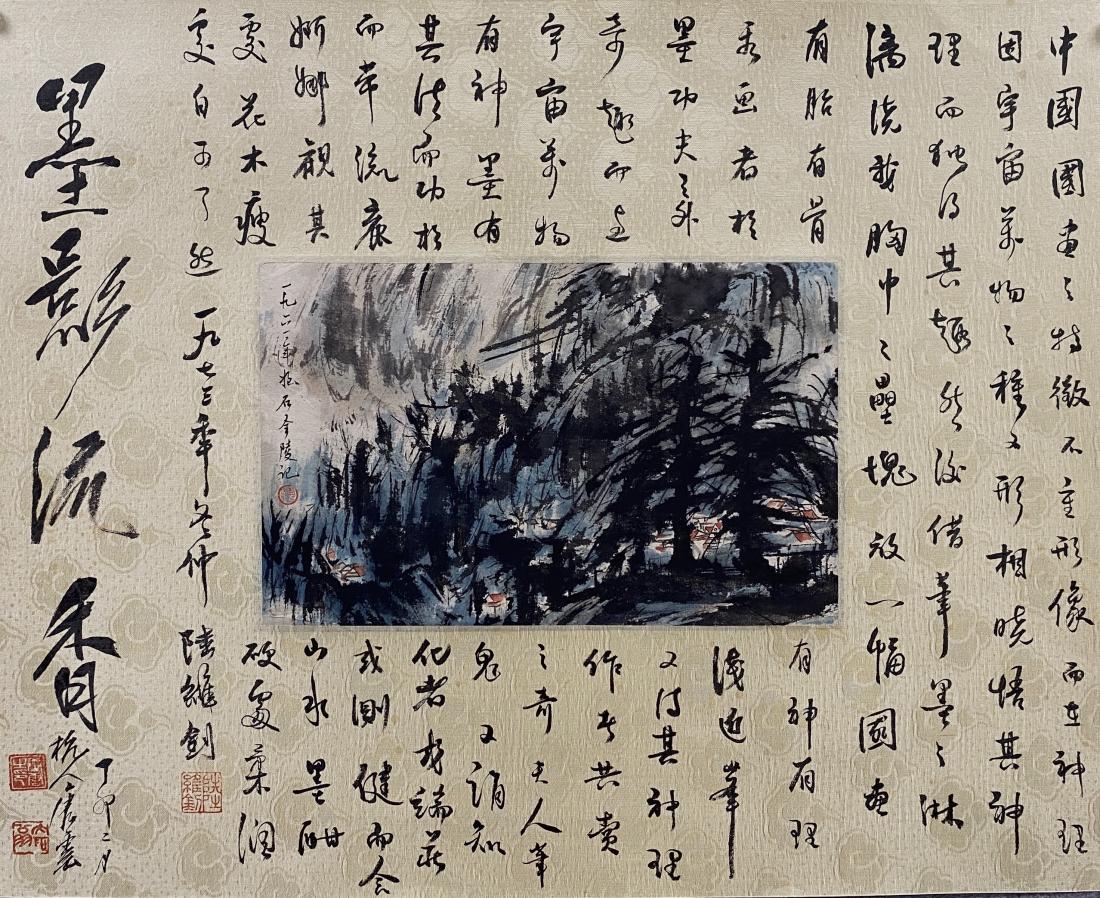 中國國画之特徵不重形像而在神理
因宇宙萬物之種々形相曉悟其神
理而独得其趣然後借筆墨之淋
漓澆我胸中之壘塊故一幅國画
有胎有骨有神有理
看画者於淺近筆
墨功夫之外又得其神理
奇趣而與作者共賞
宇宙萬物之奇夫人筆
有神墨有鬼又須知
其法而功於化者存端莊
而帶流麗或剛健而含
婀娜觀其山水墨酣
處花木瘦硬處柔潤
處自可了然 一九七三年冬仲 陸維釗
墨影流香
丁卯二月
杭人唐雲
一九六一年抱石金陵記
陸維釗